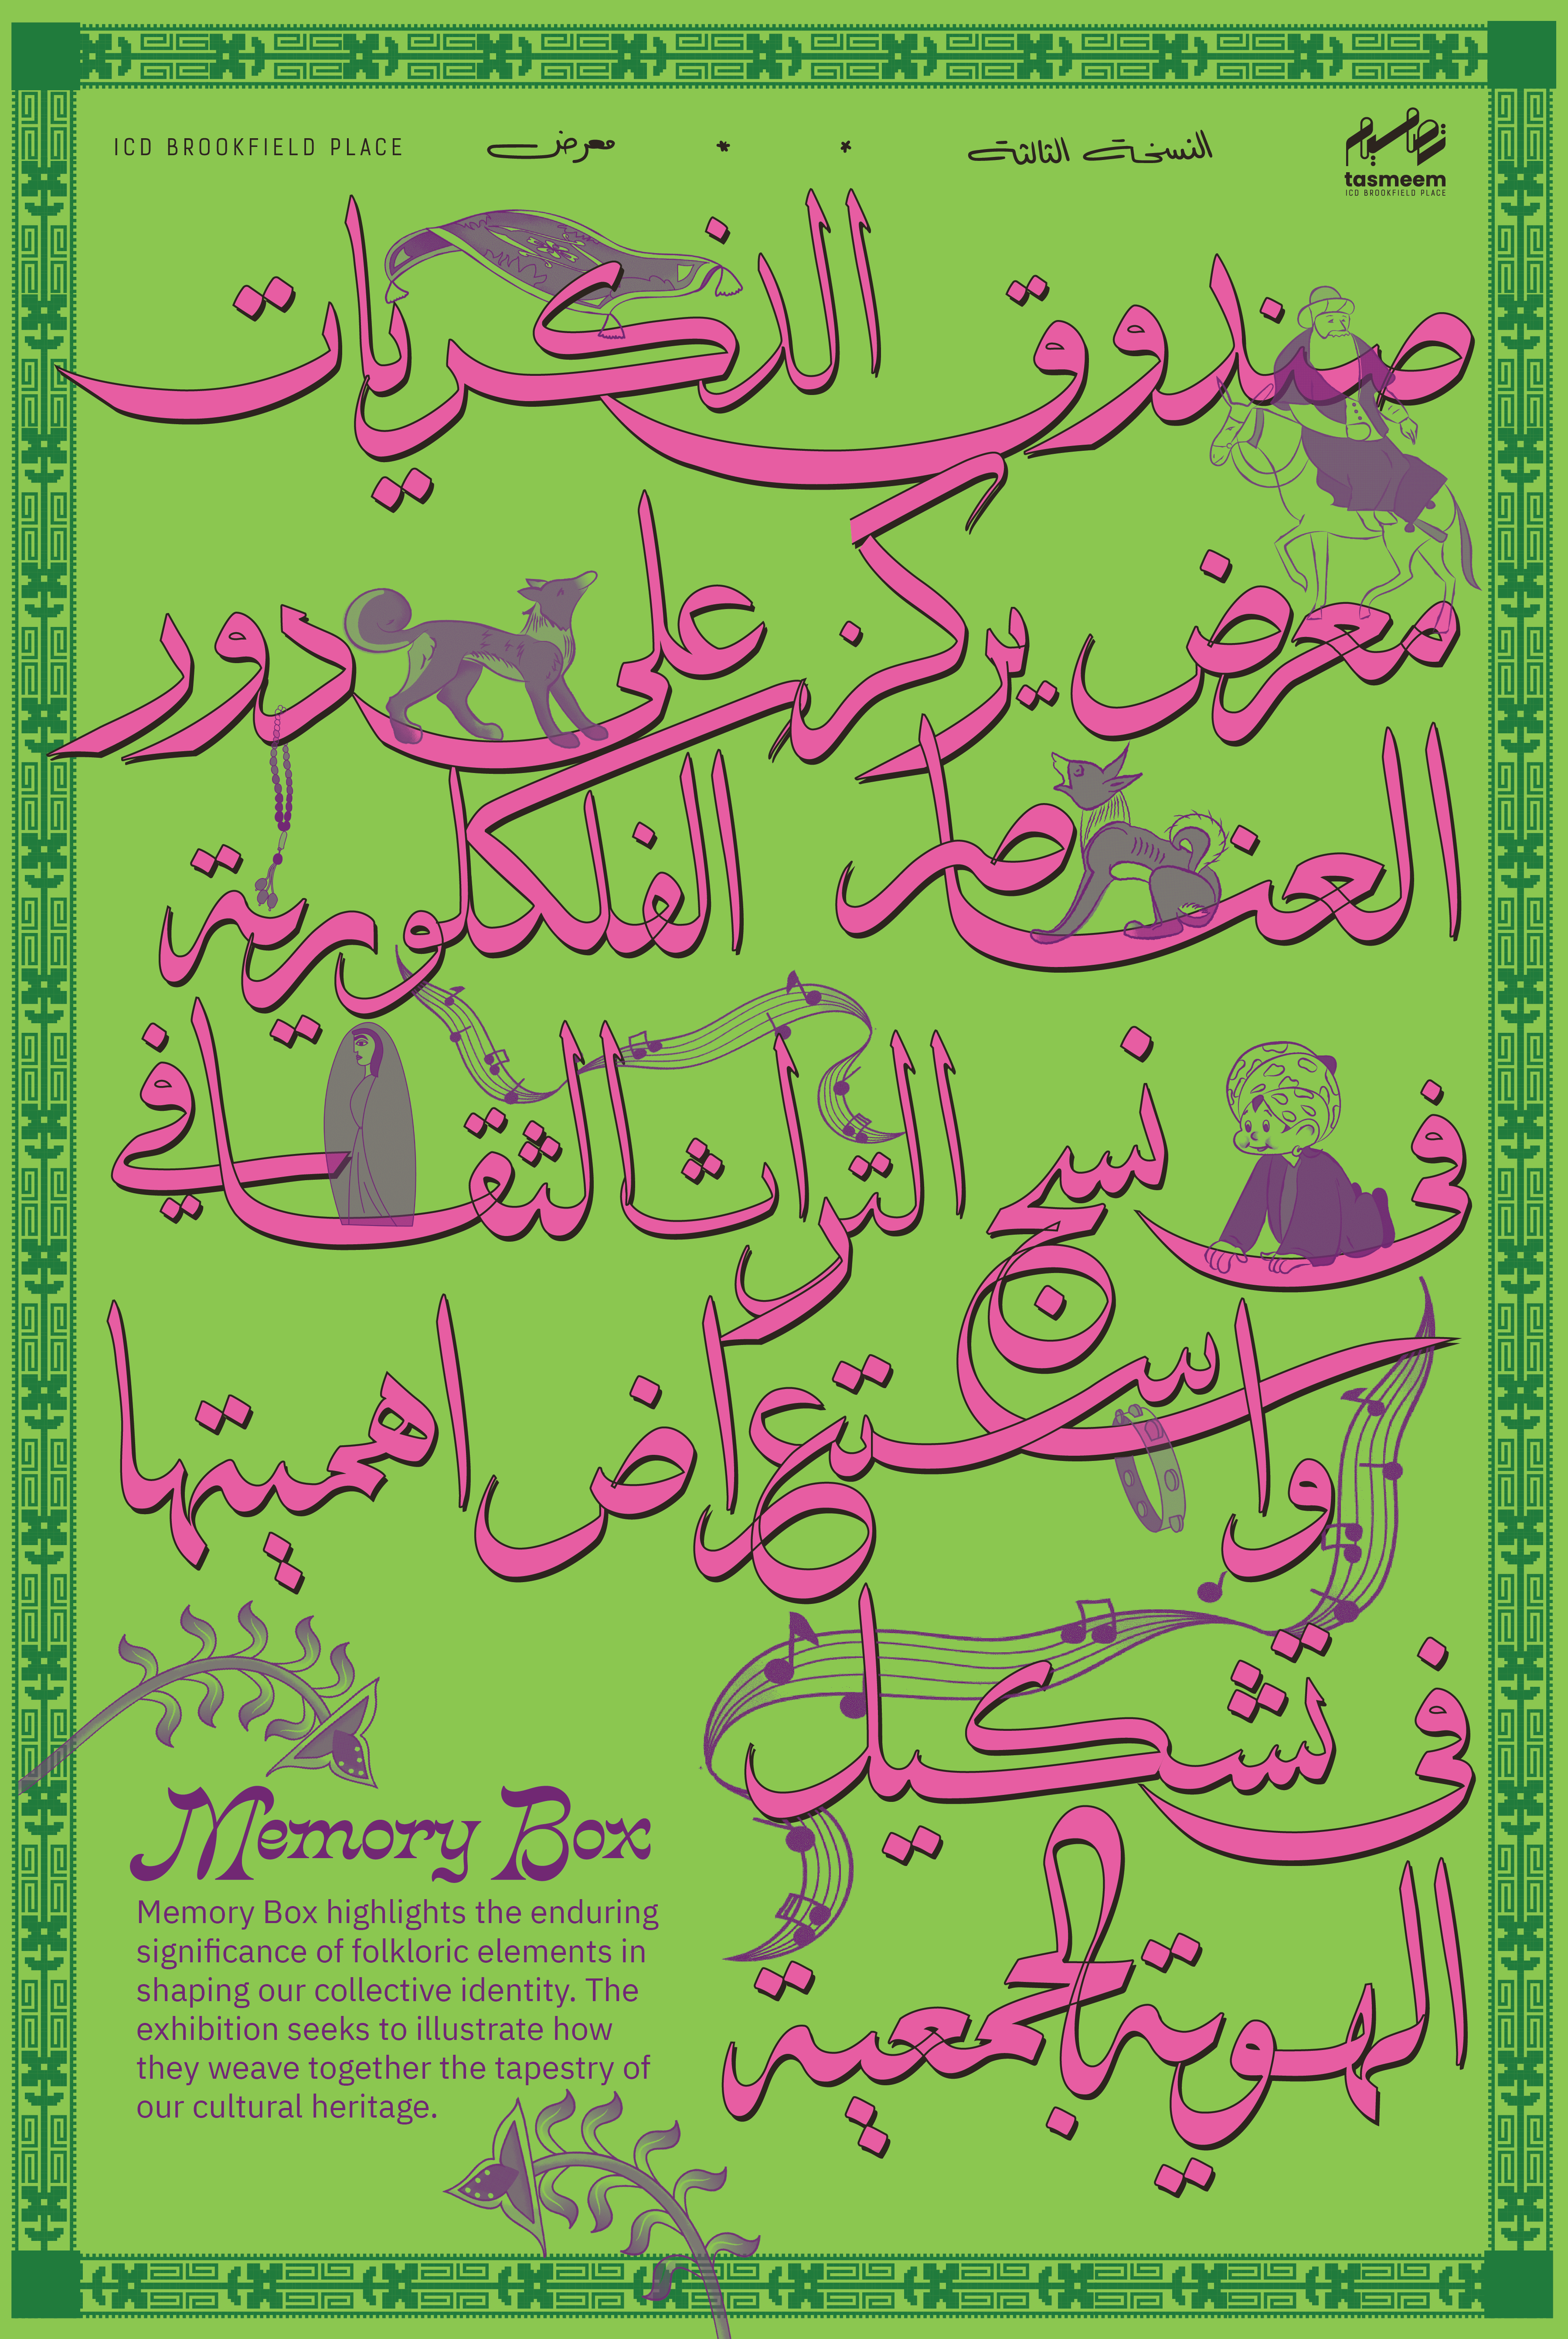 تصاميم
tasmeem
ICD BROOKFIELD PLACE
النسخة الثالثة * * معرض ICD BROOKFIELD PLACE
صندوق الذكريات
معرض يركز على دور
العناصر الفلكلورية
في نسج التراث الثقافي
واستعراض اهميتها
في تشكيل
الهوية الجمعية
Memory Box
Memory Box highlights the enduring
significance of folkloric elements in
shaping our collective identity. The
exhibition seeks to illustrate how
they weave together the tapestry of
our cultural heritage.